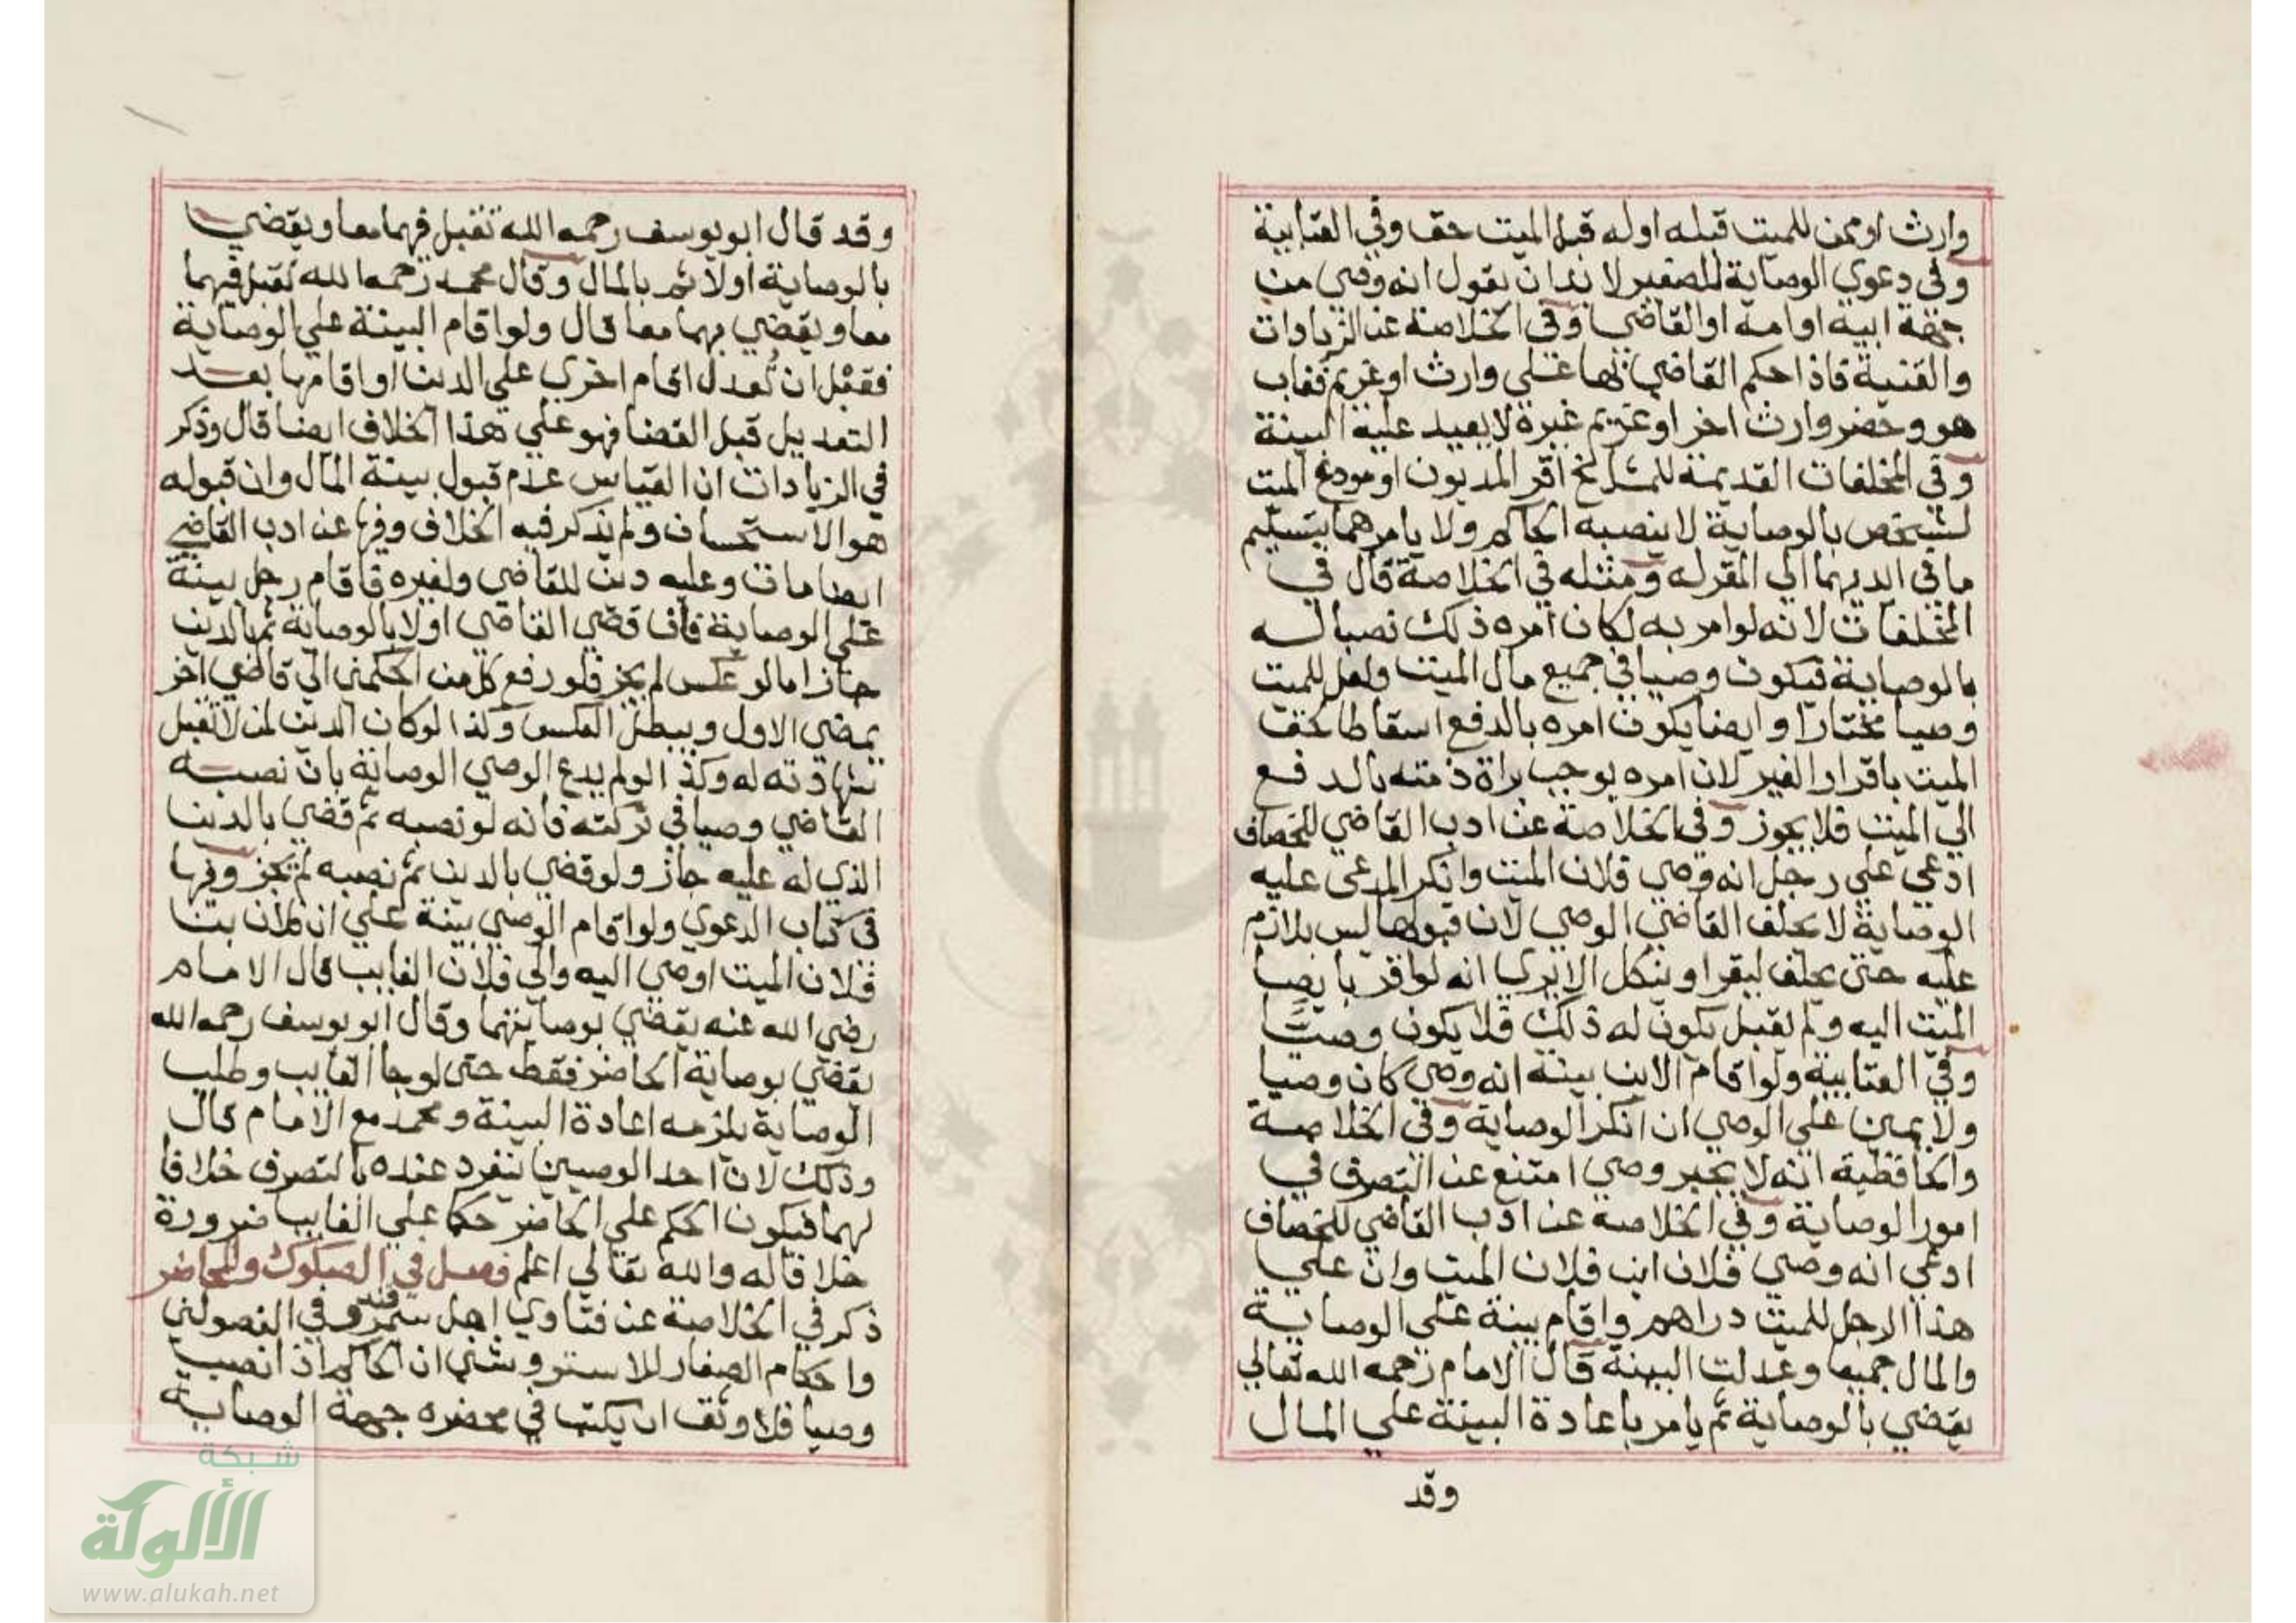 وارث او ممن للميت قبله او له قبل الميت حق وفي العتابية
وفي دعوي الوصاية للصغير لا بد ان يقول انه وصي من
جهة ابيه او امه او القاضي وفي الخلاصة عن الزيادات
والقنية فاذا حكم القاضي بها علي وارث او غريم فغاب
هو وحضر وارث اخر او غريم غيره لا يعيد عليه البينة
وفي المخلفات القديمة للمشايخ اقر المديون او مودع الميت
لشخص بالوصاية لا ينصبه الحاكم ولا يامرهما بتسليم
ما في ايديهما الي المقر له ومثله في الخلاصة قال في
المخلفات لانه لو امر به لكان امره ذلك نصبا له
بالوصاية فيكون وصيا في جميع مال الميت ولعل للميت
وصيا مختارا وايضا يكون امره بالدفع اسقاطا لحق
الميت باقرار الغير لان امره يوجب براة ذمته بالدفع
الي الميت فلا يجوز وفي الخلاصة عن ادب القاضي للخصاف
ادعي علي رجل انه وصي فلان الميت وانكر المدعى عليه
الوصاية لا يحلف القاضي الوصي لان قبولها ليس بلازم
عليه حتى يحلف ليقر او ينكل الا يري انه لو اقر بايصا
الميت اليه ولم يقبل يكون له ذلك فلا يكون وصيًّا
وفي العتابية ولو اقام الابن بينة انه وصي كان وصيا
ولا يمين علي الوصي ان انكر الوصاية وفي الخلاصة
والحافظية انه لا يجبر وصي امتنع عن التصرف في
امور الوصاية وفي الخلاصة عن ادب القاضي للخصاف
ادعي انه وصي فلان ابن فلان الميت وان علي
هذا الرجل للميت دراهم واقام بينة علي الوصاية
والمال جميعا وعدلت البينة قال الامام رحمه الله تعالي
يقضي بالوصاية ثم يامر باعادة البينة علي المال
وقد
وقد قال ابو يوسف رحمه الله تقبل فيهما معا ويقضي
بالوصاية اولا ثم بالمال وقال محمد رحمه الله تقبل فيهما
معا ويقضي بهما معا قال ولو اقام البينة علي الوصاية
فقبل ان تُعدل اقام اخري علي الدين او اقامها بعد
التعديل قبل القضا فهو علي هذا الخلاف ايضا قال وذكر
في الزيادات ان القياس عدم قبول بينة المال وان قبوله
هو الاستحسان ولم يذكر فيه الخلاف وفيها عن ادب القاضي
ايضا مات وعليه دين للقاضي ولغيره فاقام رجل بينة
علي الوصاية فان قضي القاضي اولا بالوصاية ثم بالدين
جاز اما لو عكس لم يجز فلو رفع كل من الحكمين الي قاضي اخر
يمضي الاول ويبطل العكس وكذا لو كان الدين لمن لا تقبل
شهادته له وكذا لو لم يدع الوصي الوصاية بان نصبه
القاضي وصيا في تركته فانه لو نصبه ثم قضي بالدين
الذي له عليه جاز ولو قضي بالدين ثم نصبه لم يجز وفيها
في كتاب الدعوي ولو اقام الوصي بينة علي ان فلان بن
فلان الميت اوصي اليه والي فلان الغايب قال الامام
رضي الله عنه يقضي بوصايتهما وقال ابو يوسف رحمه الله
يقضي بوصاية الحاضر فقط حتى لو جا الغايب وطلب
الوصاية يلزمه اعادة البينة ومحمد مع الامام قال
وذلك لان احد الوصيين ينفرد عنده بالتصرف خلافا
لهما فيكون الحكم علي الحاضر حكما علي الغايب ضرورة
خلافا له والله تعالي اعلم فصل في الصكوك والمحاضر
ذكر في الخلاصة عن فتاوي اهل سمرقند وفي الفصولين
واحكام الصغار للاستروشني ان الحاكم اذا نصب
وصيا فلا وثق ان يكتب في محضره جهة الوصاية
شبكة
الألوكة
www.alukah.net